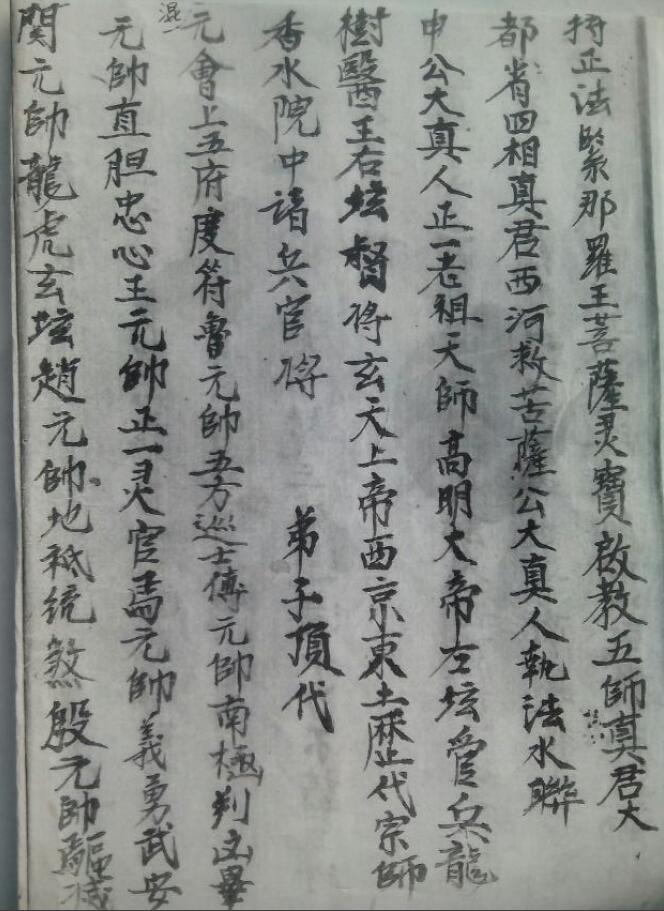 持正法紧那羅王菩薩灵寶啟教五師真君大
都省四相真君西河救苦薩公大真人執法水聯
申公大真人正一老祖天師高明大帝左坛管兵龍
樹醫王右坛督将玄天上帝西京東土歷代宗師
香水院中請兵官将 弟子頂代
混
元會上五府度符魯元帥五方巡士傅元帥南極判 畢
元帥直胆忠心王元帥正一灵官馬元帥義勇武安
関元帥龍虎玄坛趙元帥地祇統煞殷元帥驅减